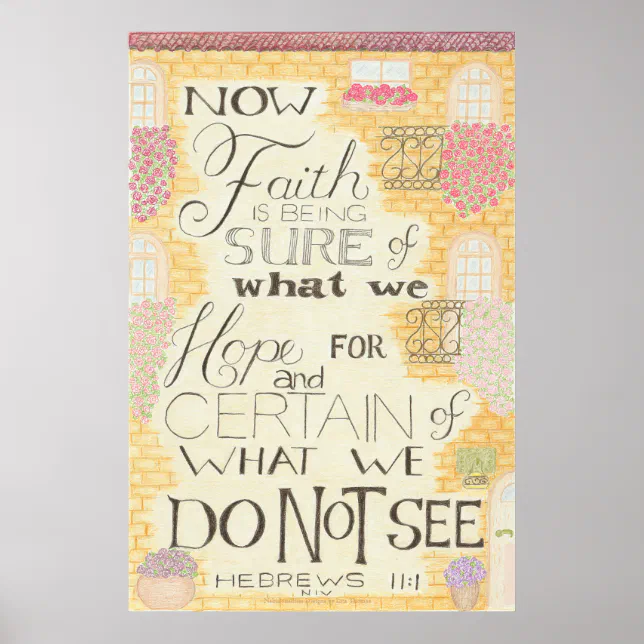 NOW
Faith
IS BEING
SURE of
what we
Hope FOR
and
CERTAIN of
WHAT WE
DO NOT SEE
HEBREWS 11:1
NIV